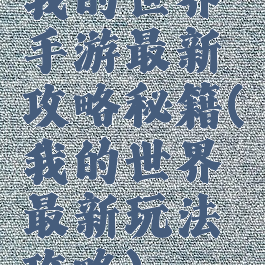 我的世界
手游最新
攻略秘籍(
我的世界
最新玩法
攻略)